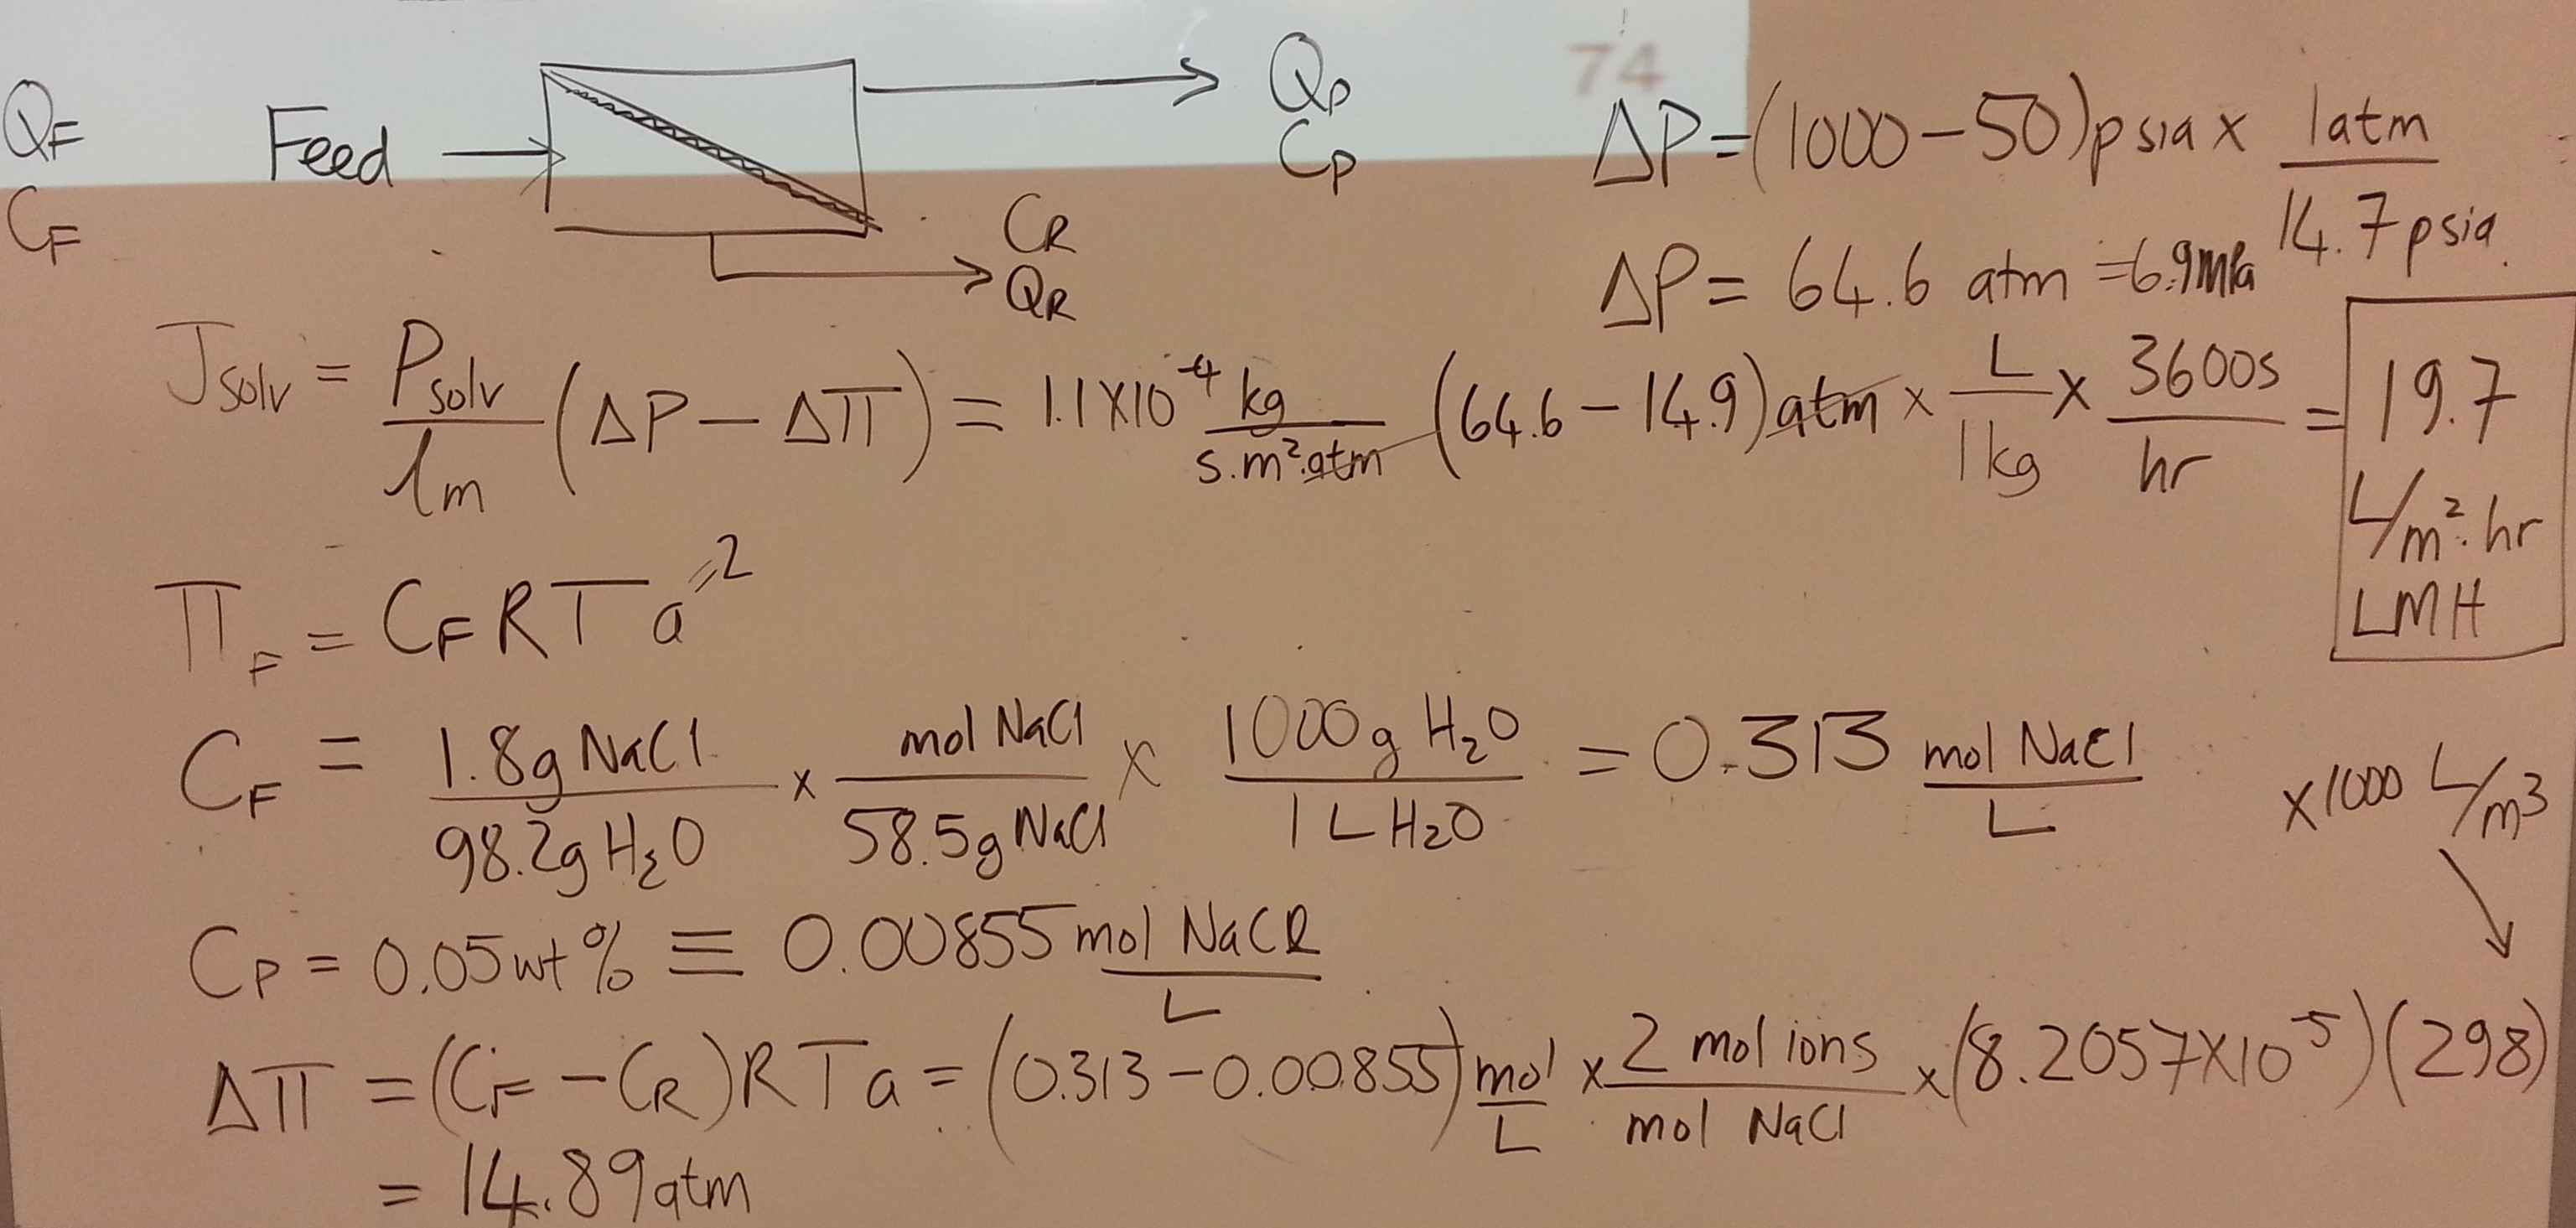 74
Q_F
C_F
Feed
Q_P
C_P
C_R
Q_R
ΔP = (1000 - 50) psia x 1atm / 14.7 psia.
ΔP = 64.6 atm = 6.9 MPa
J_solv = P_solv / l_m (ΔP - Δπ) = 1.1 x 10^-4 kg / s.m².atm (64.6 - 14.9) atm x L / 1kg x 3600s / hr = 19.7 L/m².hr LMH
π_F = C_F R T a =2
C_F = 1.8g NaCl / 98.2g H₂O x mol NaCl / 58.5g NaCl x 1000g H₂O / 1 L H₂O = 0.313 mol NaCl / L x1000 L/m³
C_P = 0.05 wt% ≡ 0.00855 mol NaCl / L
Δπ = (C_F - C_R) R T a = (0.313 - 0.00855) mol / L x 2 mol ions / mol NaCl x (8.2057 x 10^-5)(298)
= 14.89 atm